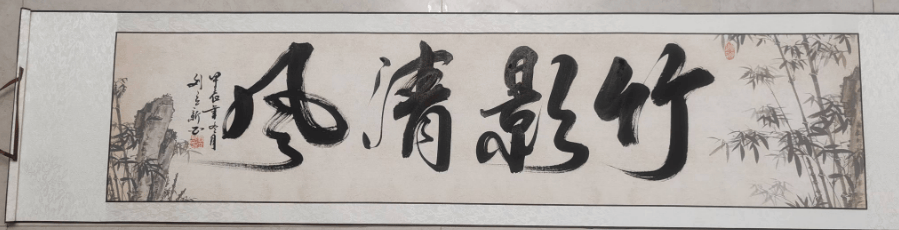 竹影清风
甲辰年冬月